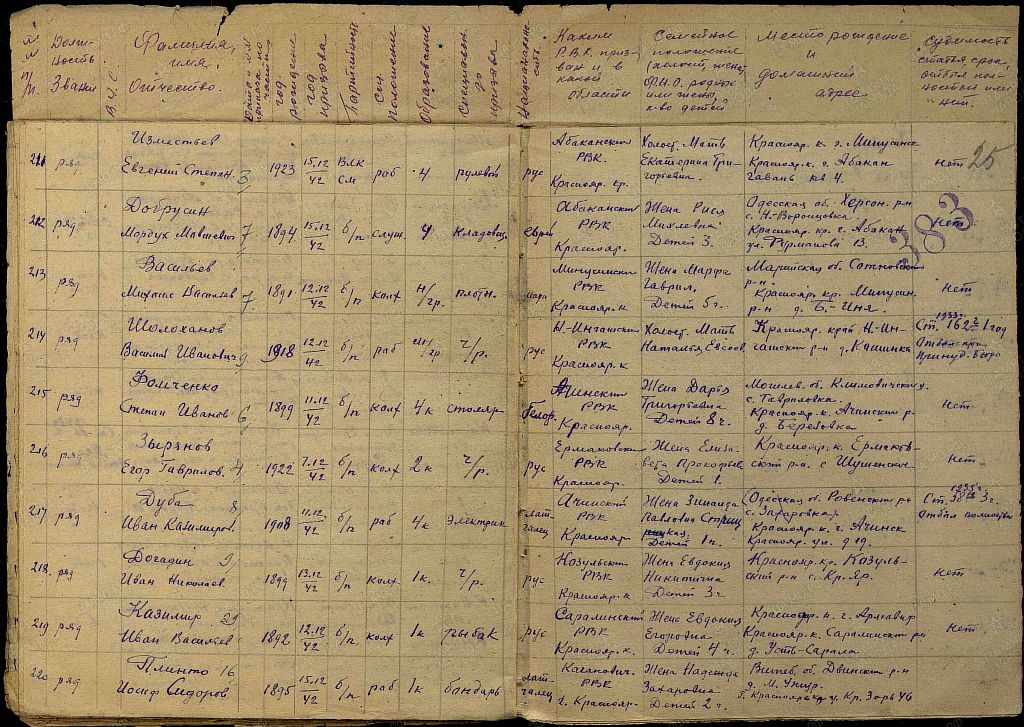 Должность Звание
Фамилия, имя, Отчество.
год рождения
год призыва
Партийность
Соц. положение
Образование
Специальн. до призыва
Национальность
Каким РВК призван и в какой области
Семейное положение (холост, женат) Ф.И.О. родит. или жены, к-во детей
Место рождение и домашний адрес
Судимость статья, срок, отбыл полностью или нет.
25
383
211 ряд Изместьев Евгений Степан. 3 1923 15.12/42 ВЛКСМ раб 4 рулевой рус Абаканский РВК. Краснояр. кр. Холост. Мать Екатерина Григорьевна. Краснояр. к. г. Минусинск Краснояр. к. г. Абакан Гавань кв 4. Нет
212 ряд Добрусин Мордух 7 1894 15.12/42 б/п служ 4 кладовщ. еврей Абаканским РВК Краснояр. Жена Рися Михлевна Детей 3. Одесская об. Херсон. р-н с. Н-Воронцовка Краснояр. кр. г. Абакан ул. Фурманова 13. Нет
213 ряд Васильев Михаил Васильев 7 1891 12.12/42 б/п колх н/гр. плотн. мари Минусински РВК Краснояр. к Жена Марфа Гаврил, Детей 5 ч. Марийская об. р-н. Краснояр. кр. Минусин. р-н д. Б.-Иня. Нет
214 ряд Шолоханов Василий Иванович 9 1918 12.12/42 б/п раб н/гр ч/р. рус Н-Ингашским РВК Краснояр. к Холост. Мать Наталья Евсеев Краснояр. край Н-Ингашский р-н д. Кашинка 1933г. Ст. 162 1 год Отбыл при Принуд. Бюро
215 ряд Фомченко Степан Иванов 6 1899 11.12/42 б/п колх 4к столяр белор. Ачинский РВК Красояр. Жена Дарья Григорьевна Детей 8 ч. Могилев. об. Климовичский с. Гавриловка. Краснояр. к. Ачинский р. д. Березовка Нет
216 ряд Зырянов Егор Гаврилов. 4 1922 7.12/42 б/п колх 2к ч/р. рус Ермаковский РВК Краснояр. Жена Елизавета Прокофьев Детей 1. Краснояр. к. Ермаковский р-н. с Шушенским Нет
217 ряд Дуба 8 Иван Казимиров. 1908 11.12/42 б/п раб 4к электрик латгалец Ачинский РВК Краснояр Жена Зинаида Павловна Детей 1 ч. Одесская об. Ровенский рн с. Захаровка. Краснояр. к. г. Ачинск Краснояр. ул. д 19. 1935г. Ст. 3 г. Отбыл полностью
218. ряд Догадин 9 Иван Николаев. 1899 13.12/42 б/п колх. 1к. ч/р. рус Козульск РВК Краснояр. к Жена Евдокия Никитична Детей 3 ч Краснояр. кр. Козульский р-н с. Кр. Яр. Нет
219 ряд Казимир 29 Иван Васильев 1892 12.12/42 б/п колх 1к рыбак рус Саралинский РВК Краснояр. к. Жена Евдокия Егоровна Детей 4 ч. Краснодар. к. г. Армавир Краснояр. к. Саралинский рн д. Усть-Сарала Нет
220 ряд Плинто 16 Иосиф Сидоров 1895 15.12/42 б/п раб 1к бондарь латгалец Каганович. РВК г. Краснояр. Жена Надежда Захаровна Детей 2 г. Витеб. об. Двинский р-н г. Красноярск ул. Кр. Зорь 46